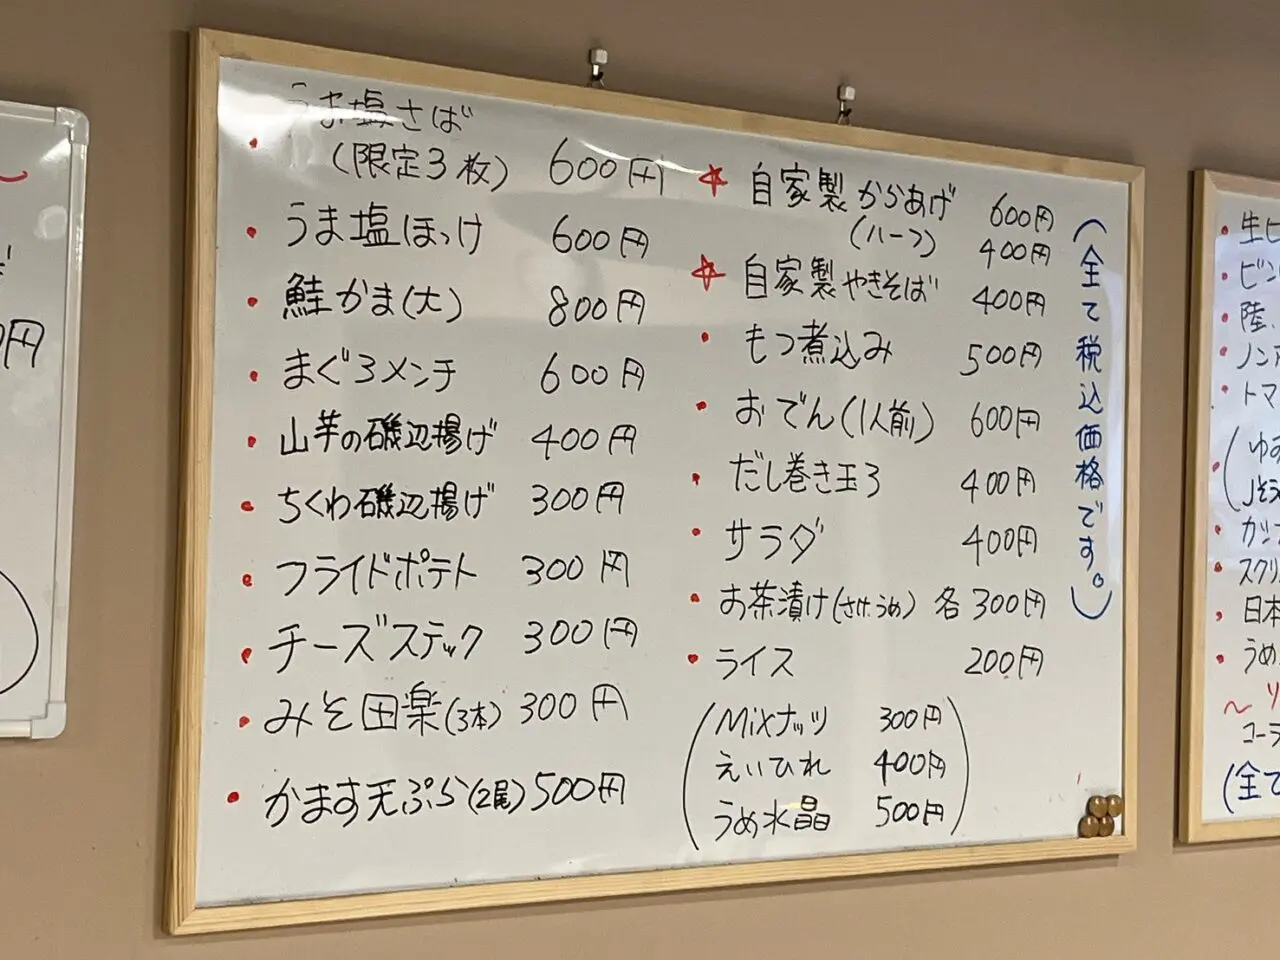 うま塩さば
(限定3枚) 600円
うま塩ほっけ 600円
鮭かま(大) 800円
まぐろメンチ 600円
山芋の磯辺揚げ 400円
ちくわ磯辺揚げ 300円
フライドポテト 300円
チーズスティック 300円
みそ田楽(3本) 300円
かます天ぷら(2尾) 500円
☆自家製からあげ 600円
(ハーフ) 400円
☆自家製やきそば 400円
もつ煮込み 500円
おでん(1人前) 600円
だし巻き玉子 400円
サラダ 400円
お茶漬け(さけ.うめ) 各300円
ライス 200円
(Mixナッツ 300円
えいひれ 400円
うめ水晶 500円)
(全て税込価格です。)
円
生ビ
ビン
陸、
ノンア
トマ
ゆず
カシ
スクリ
日本
うめ
コーラ
(全て